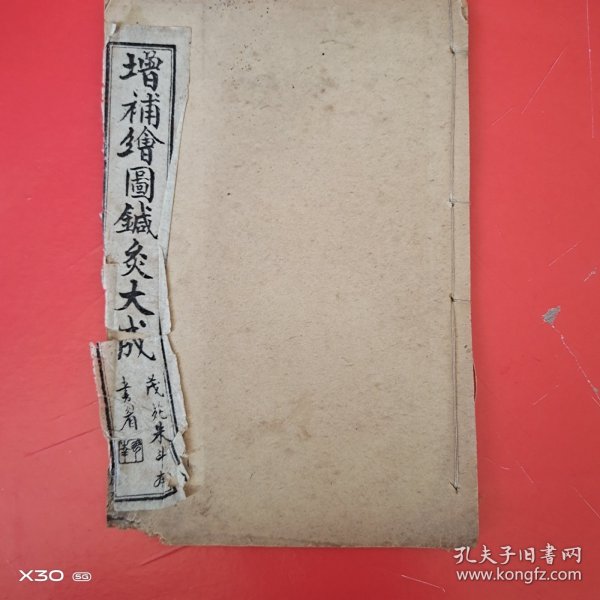 增補繪圖鍼灸大成
茂苑朱斗南
書眉
X30 5G
孔夫子旧书网
www.kongfz.com